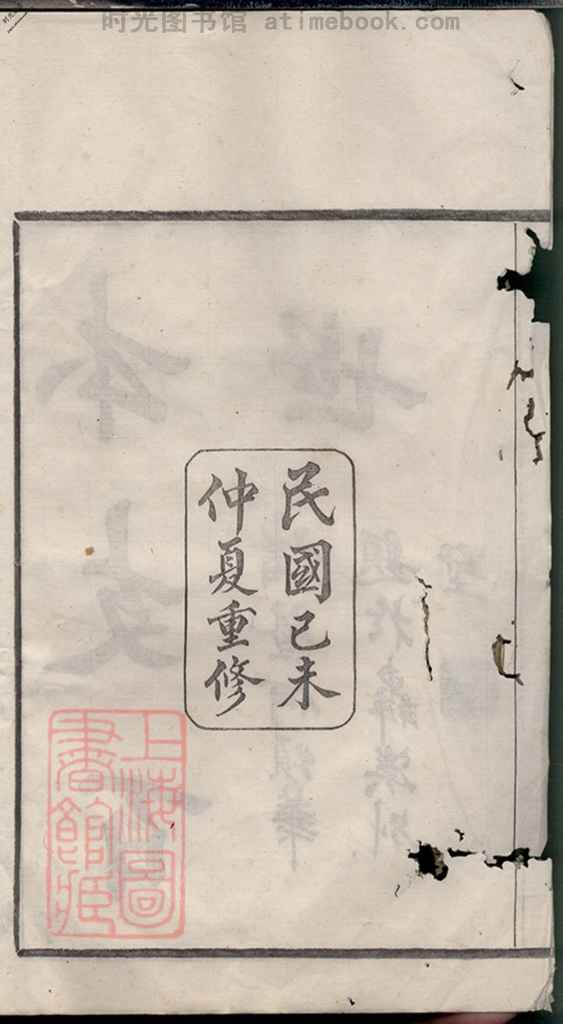 时光图书馆 atimebook.com
民國己未
仲夏重修
上海圖
書館藏